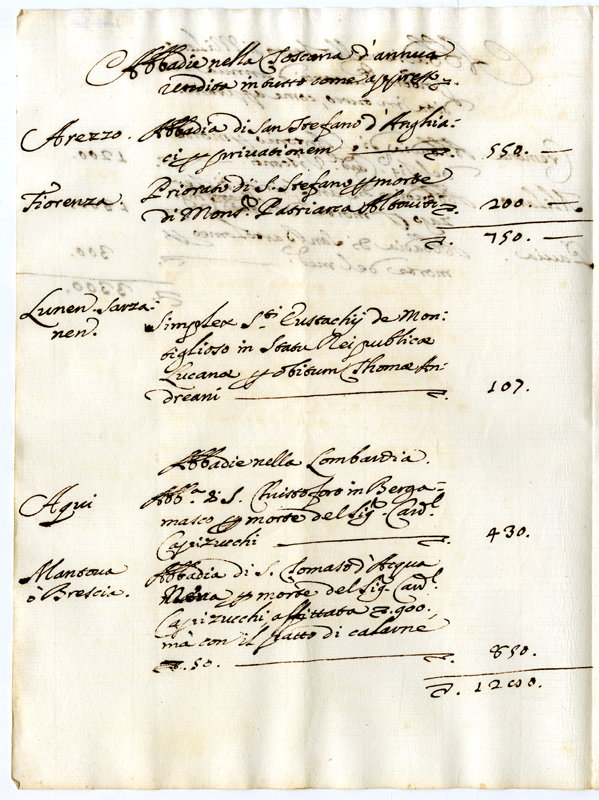 Abbadie nella Toscana d'annua
rendita in tutto come appresso ∇.
Arezzo. Abbadia di San Stefano d'Anghia:
ci p privationem ∇. 550. —
Fiorenza. Priorato di S. Stefano p morte
di Mons.r Patriarca Altoviti ∇. 200. —
∇. 750. —
Lunen. Sarza: Simplex S.ti Eustachij de Mon:
nen. tiglioso in Statu Reipublicæ
Lucanæ p obitum Thomæ An:
dreani ∇. 107.
Abbadie nella Lombardia.
Aqui Abb.a di S. Christoforo in Berga:
masco p morte del Sig.r Card.l
Capizucchi ∇. 430.
Mantova Abbadia di S. Tomaso d'Acqua
ò Brescia. Nera p morte del Sig.r Card.l
Capizucchi, affittata ∇. 900,
mà con il patto di calarne
∇. 50. ∇. 850.
∇. 1200.